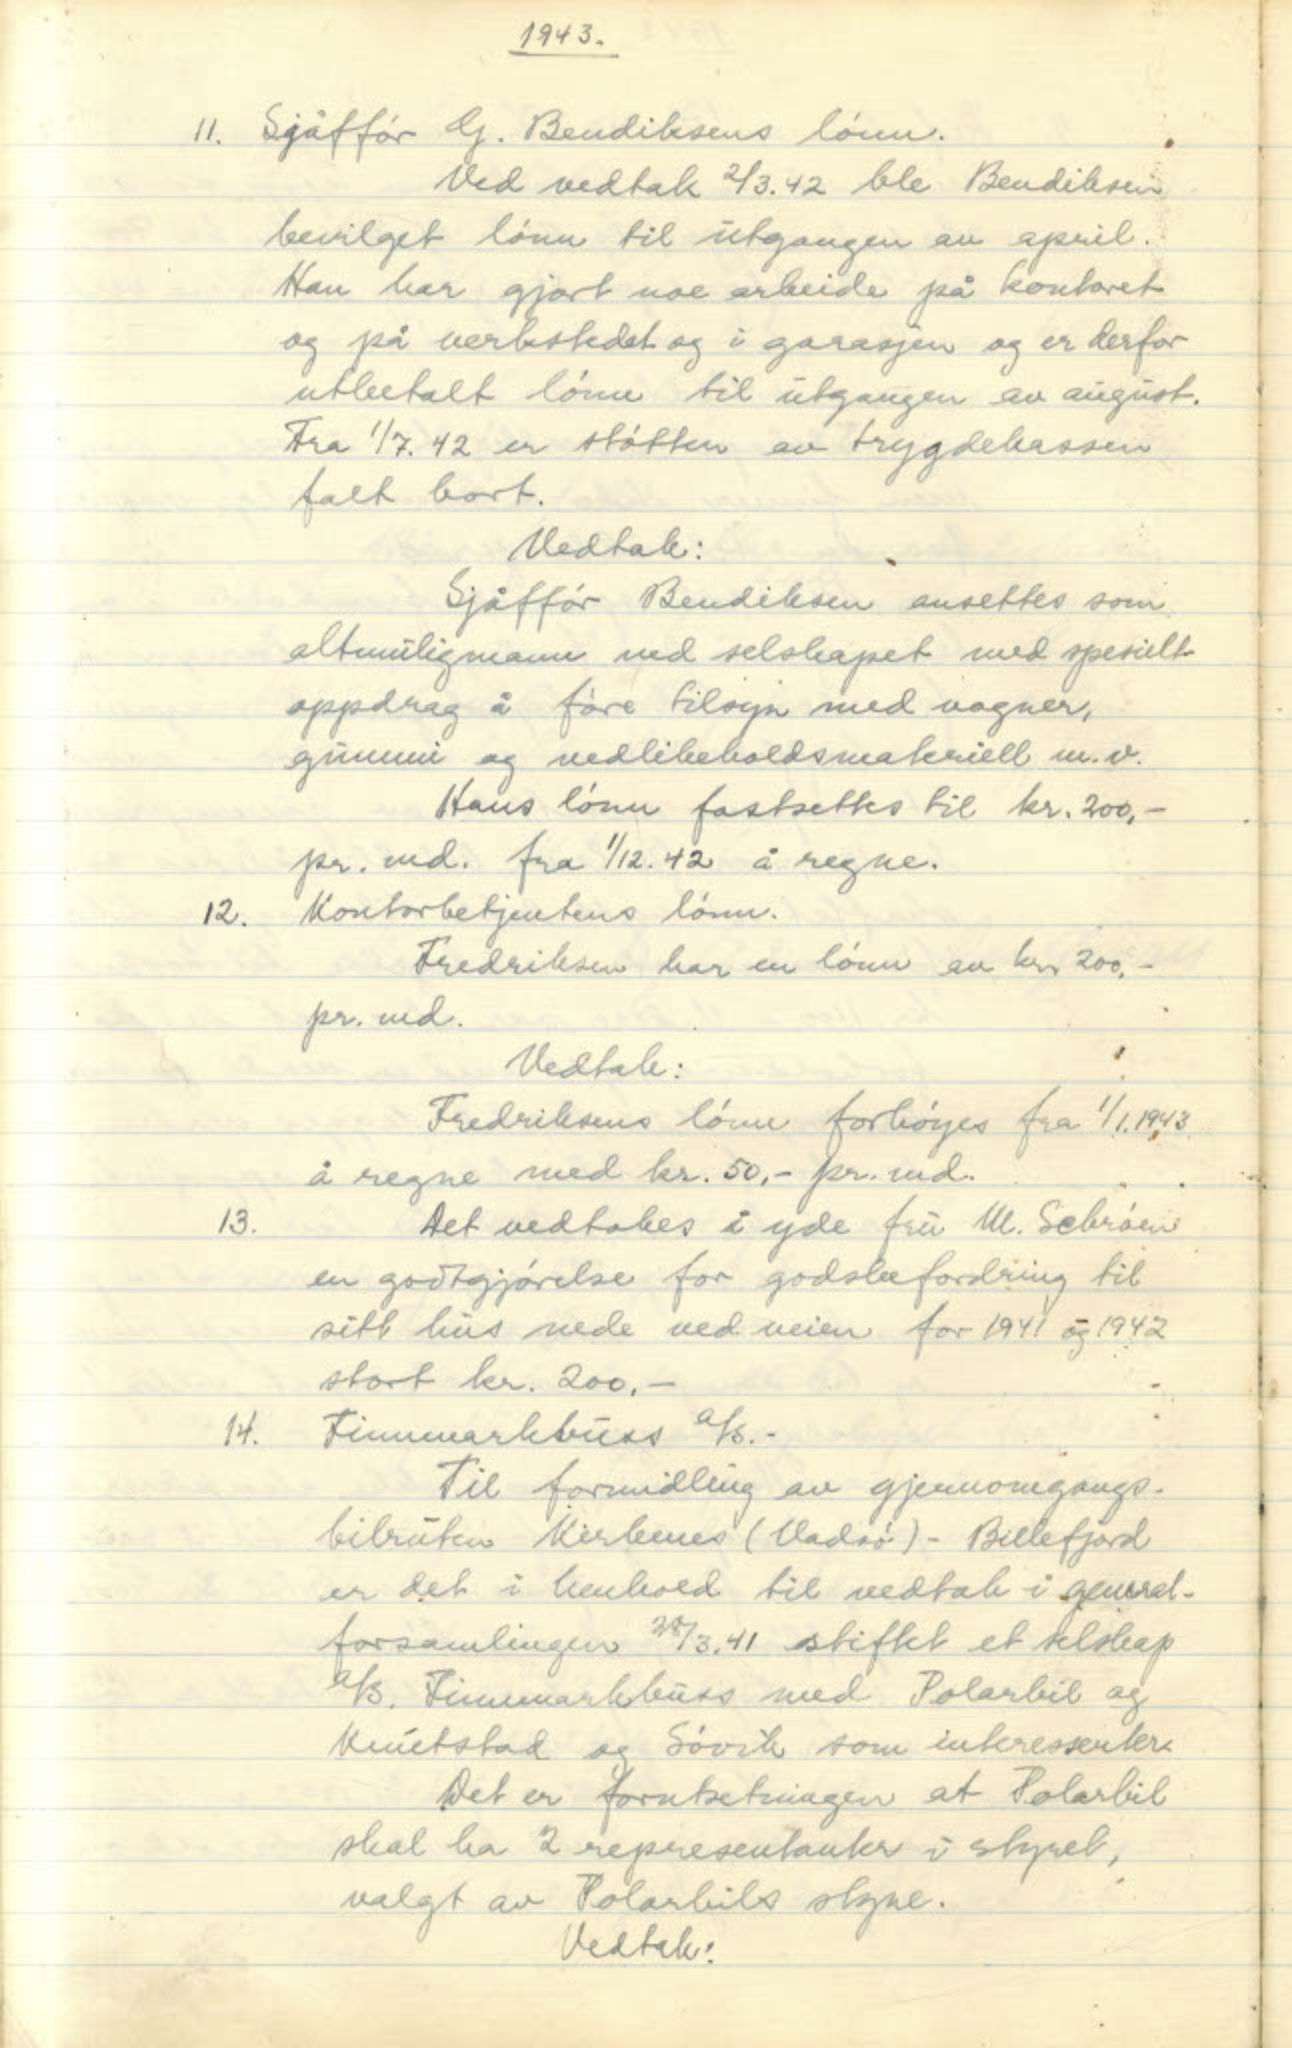 1943.
11. Sjåffór G. Bendiksens lónn.
Ved vedtak 2/3.42 ble Bendiksen
bevilget lónn til utgangen av april.
Han har gjort noe arbeide på kontoret
og på verkstedet og i garasjen og er derfor
utbetalt lónn til utgangen av august.
Fra 1/7.42 er stótten av trygdekassen
falt bort.
Vedtak:
Sjåffór Bendiksen ansettes som
altmuligmann ved selskapet med spesielt
oppdrag å fóre tilsyn med vogner,
gummi og vedlikeholdsmateriell m.v.
Hans lónn fastsettes til kr. 200,-
pr. md. fra 1/12.42 å regne.
12. Kontorbetjentens lónn.
Fredriksen har en lónn av kr. 200,-
pr. md.
Vedtak:
Fredriksens lónn forhóyes fra 1/1.1943
å regne med kr. 50,- pr. md.
13. Det vedtakes å yde fru M. Schróen
en godtgjórelse for godsbefordring til
sitt hus nede ved veien for 1941 og 1942
stort kr. 200,-
14. Finnmarkbuss a/s.-
Til formidling av gjennomgangs-
bilruten Kirkenes (Vadsó) - Billefjord
er det i henhold til vedtak i general-
forsamlingen 28/3.41 stiftet et selskap
a/s. Finnmarkbuss med Polarbil og
Knutstad og Sóvik som interessenter.
Det er forutsetningen at Polarbil
skal ha 2 representanter i styret,
valgt av Polarbils styre.
Vedtak: